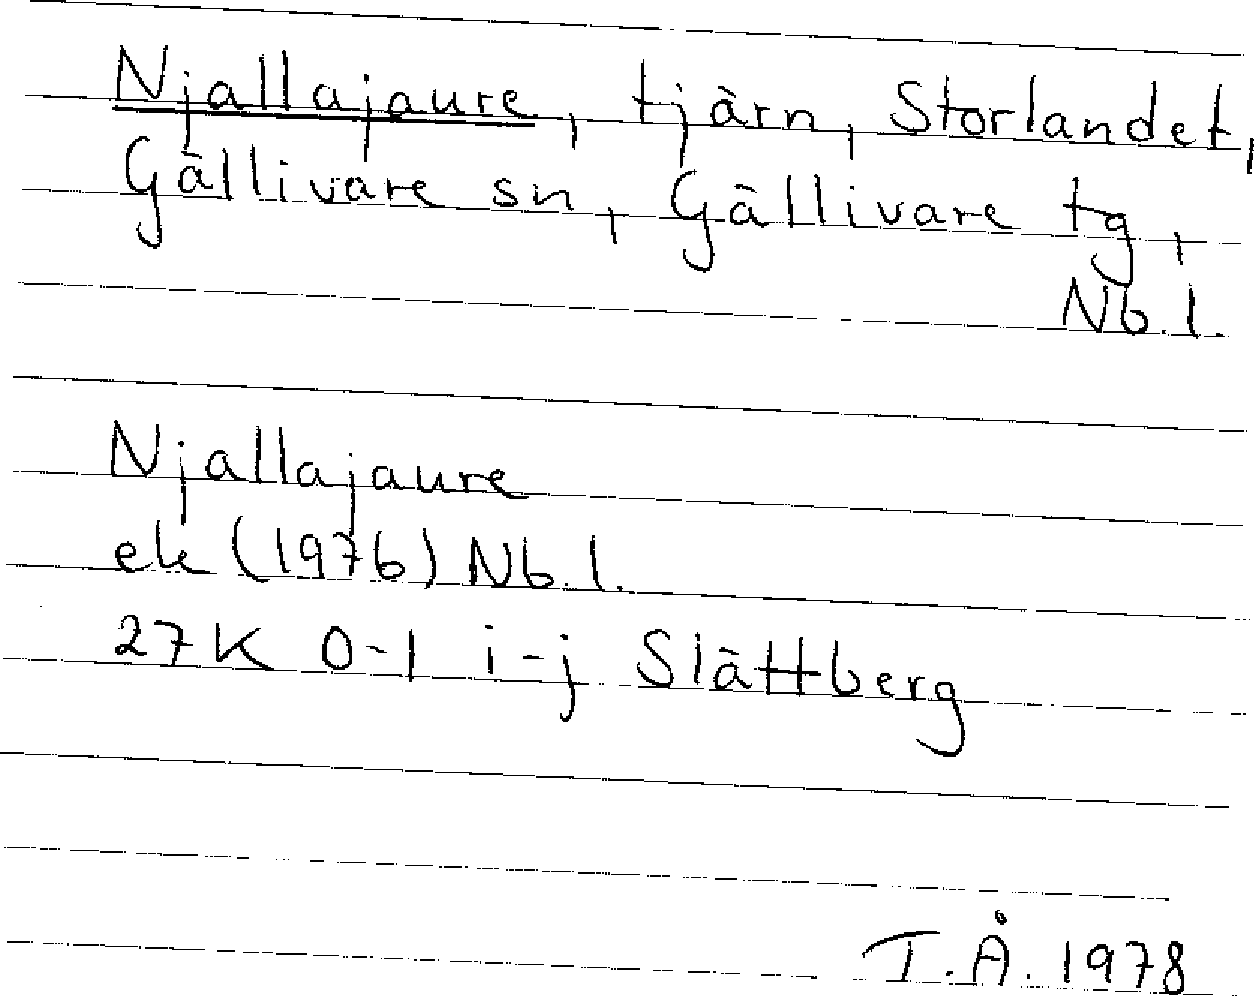 Njallajaure, tjärn, Storlandet,
Gällivare sn, Gällivare tg,
Nb. l.
Njallajaure
ek (1976) Nb. l.
27K 0-1 i-j Slättberg
T.Å. 1978